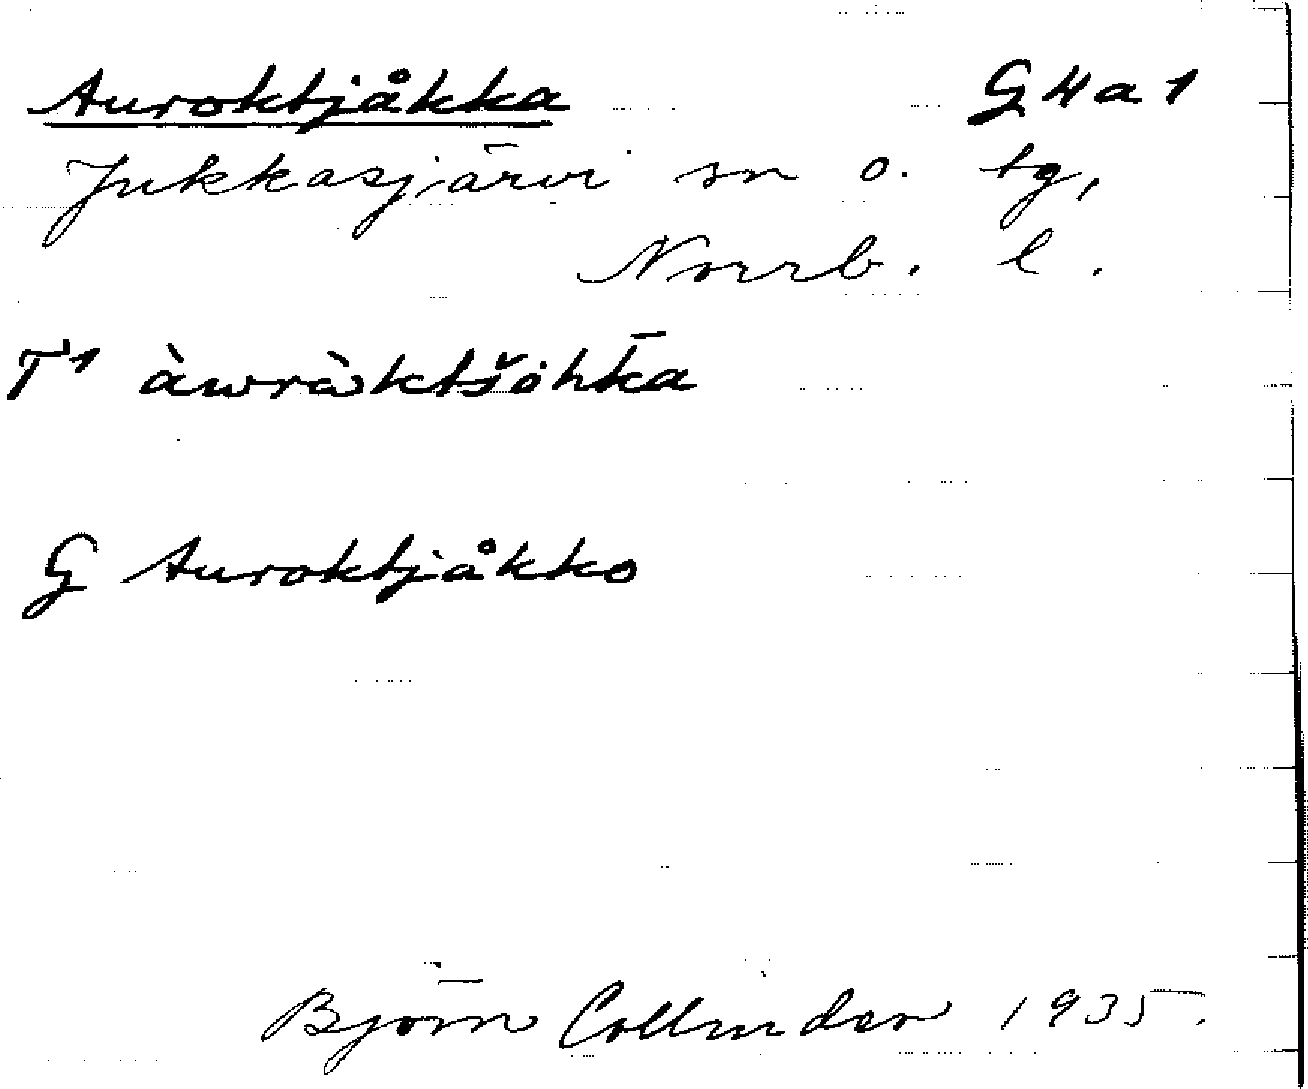 Auroktjåkka G4a1
Jukkasjärvi sn o. tg,
Norrb. l.
T1 àwràktšòhka
G Auroktjåkko
Björn Collinder 1935.